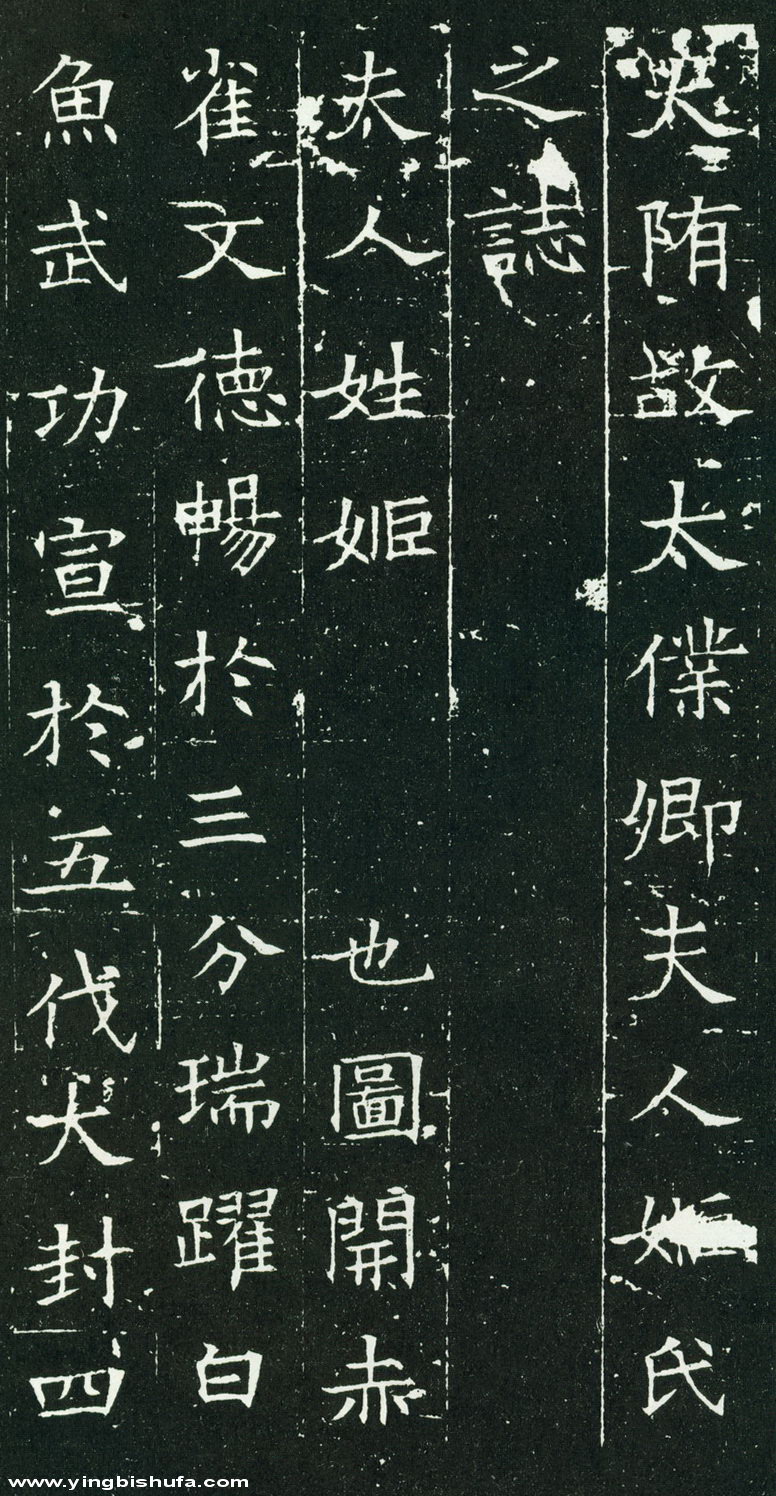 大陏故太僕卿夫人姬氏
之誌
夫人姓姬　也圖開赤
雀文德暢於三分瑞躍白
魚武功宣於五伐大封四
www.yingbishufa.com